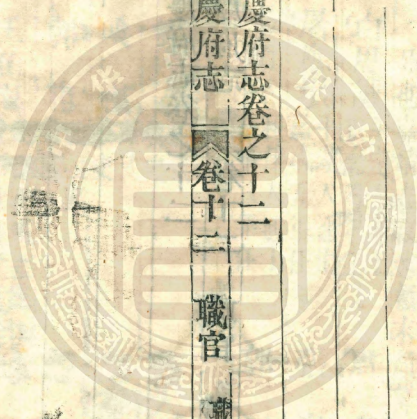 慶府志卷之十二
慶府志 卷十二 職官